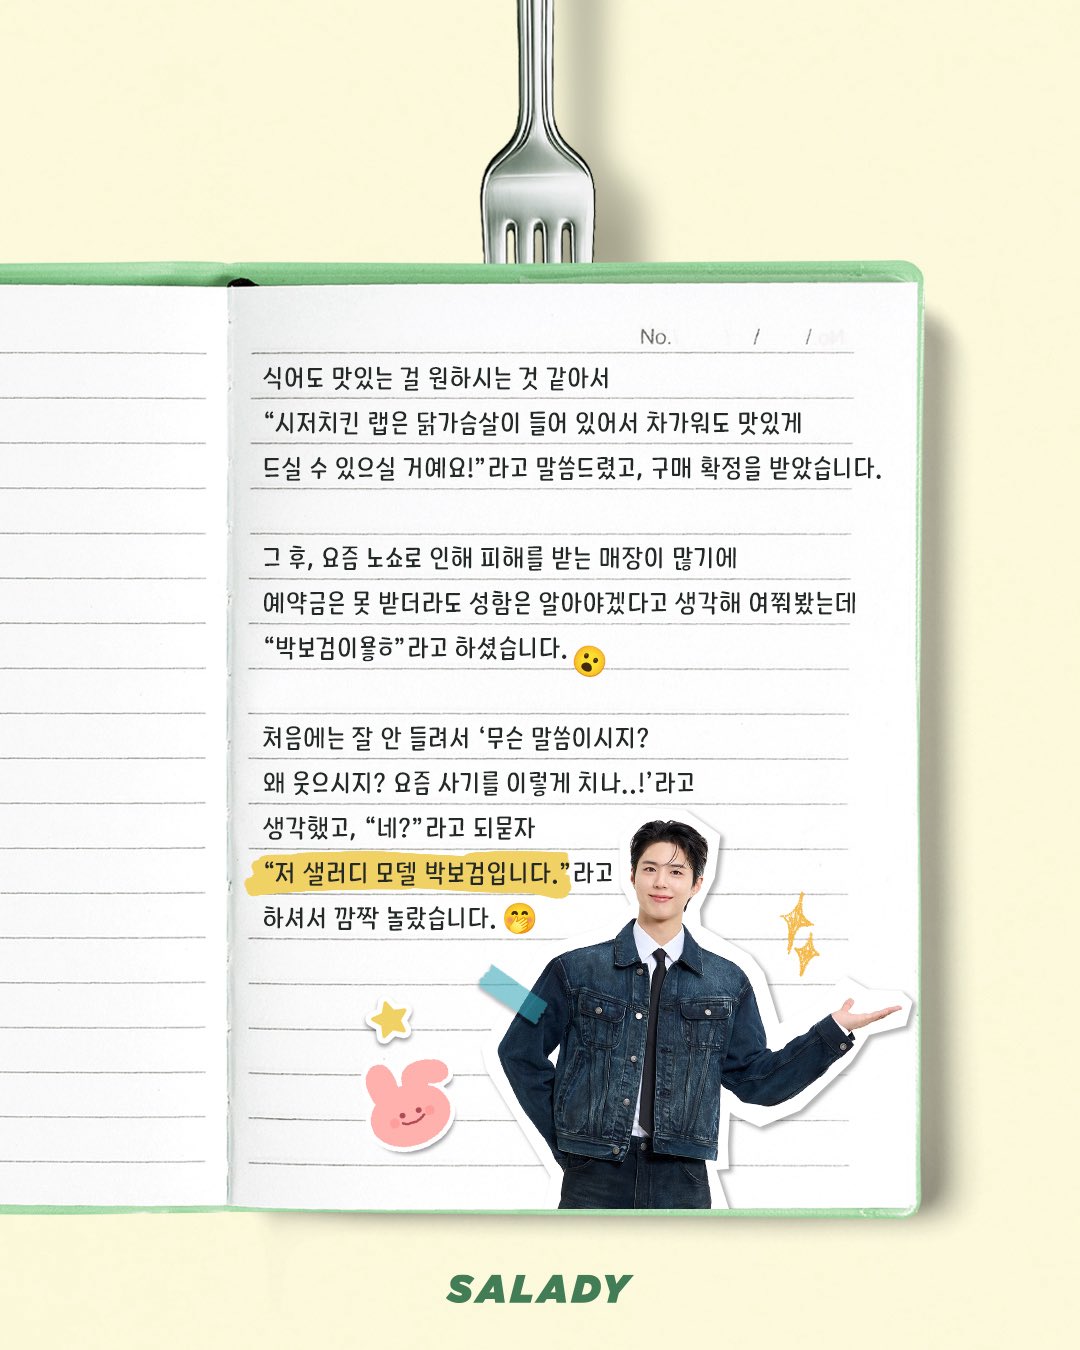 No. / /
식어도 맛있는 걸 원하시는 것 같아서
“시저치킨 랩은 닭가슴살이 들어 있어서 차가워도 맛있게
드실 수 있으실 거예요!”라고 말씀드렸고, 구매 확정을 받았습니다.
그 후, 요즘 노쇼로 인해 피해를 받는 매장이 많기에
예약금은 못 받더라도 성함은 알아야겠다고 생각해 여쭤봤는데
“박보검이욯ㅎ”라고 하셨습니다.😮
처음에는 잘 안 들려서 ‘무슨 말씀이시지?
왜 웃으시지? 요즘 사기를 이렇게 치나..!’라고
생각했고, “네?”라고 되묻자
“저 샐러디 모델 박보검입니다.”라고
하셔서 깜짝 놀랐습니다.🤭
SALADY